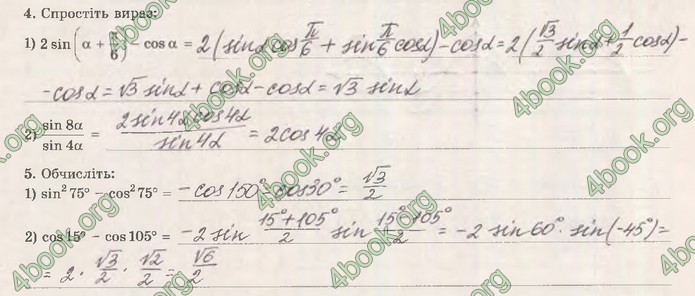 4. Спростіть вираз:
1) 2 sin(α + π/6) − cos α = 2(sinα cos π/6 + sin π/6 cosα) − cosα = 2(√3/2 sinα + 1/2 cosα) −
− cosα = √3 sinα + cosα − cosα = √3 sinα
2) sin 8α / sin 4α = 2sin4α cos4α / sin4α = 2cos4α
5. Обчисліть:
1) sin² 75° − cos² 75° = −cos150° = cos30° = √3/2
2) cos 15° − cos 105° = −2 sin 15°+105°/2 sin 15°−105°/2 = −2 sin60° · sin(−45°) =
= 2 · √3/2 · √2/2 = √6/2
4book.org